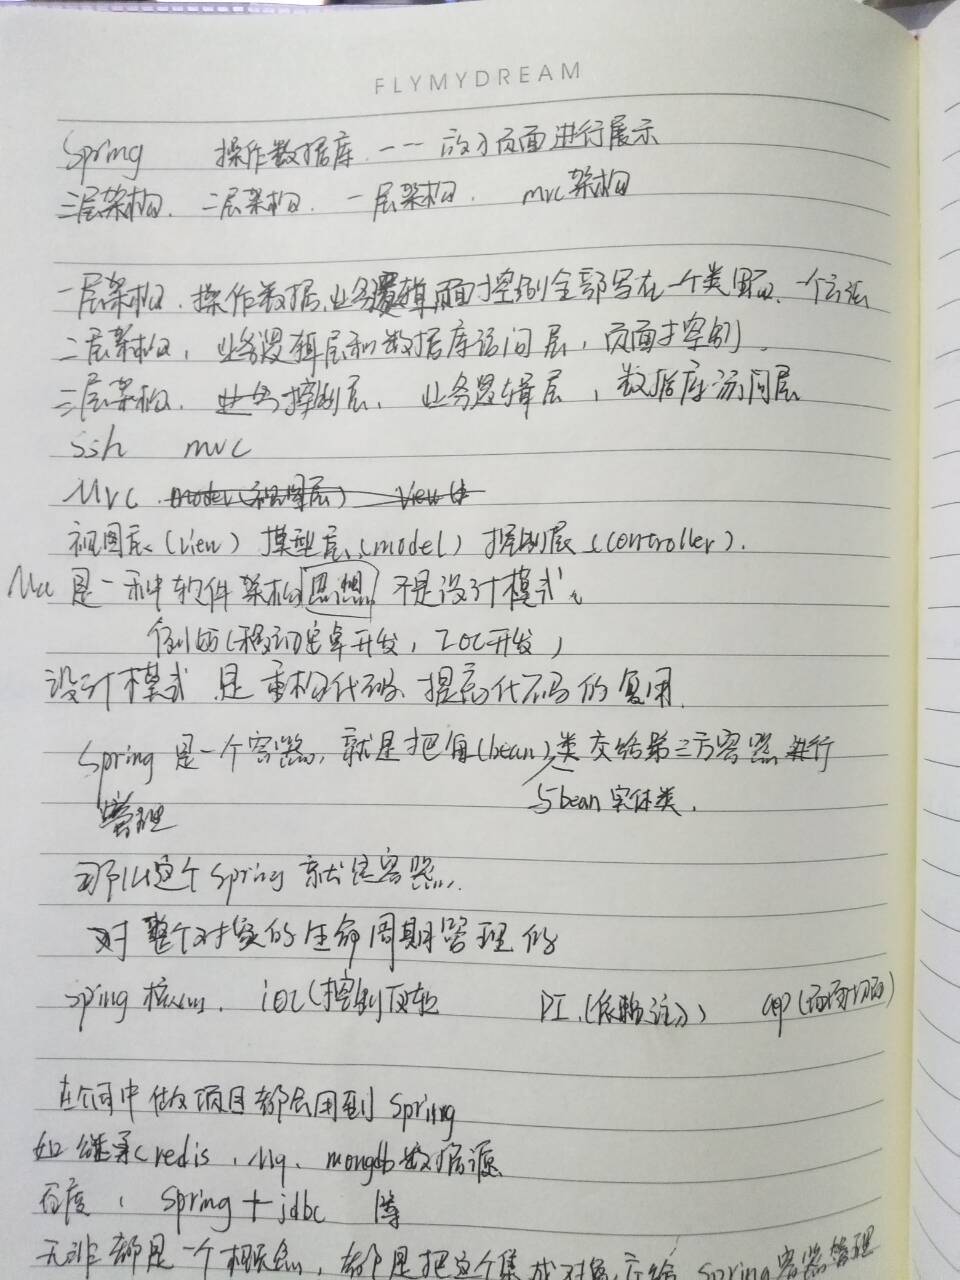 FLYMYDREAM
Spring 操作数据库 一一 放于页面进行展示
三层架构. 二层架构. 一层架构. mvc架构
一层架构. 操作数据,业务逻辑页面控制全部写在一个类里面. 一个方法
二层架构, 业务逻辑层和数据库访问层, 页面控制.
三层架构. 业务控制层、业务逻辑层, 数据库访问层
ssh mvc
Mvc model(视图层) view
视图层(view) 模型层(model) 控制层(controller).
Mvc 是一种软件架构思想 不是设计模式。
例如(移动安卓开发, IOC开发)
设计模式 是 重构代码、提高代码的复用.
Spring 是一个容器, 就是把每(bean)类交给第三方容器进行
与bean实体类.
管理
那么这个Spring 就是容器.
对整个对象的生命周期管理的
Spring 核心. ioc(控制反转 DI.(依赖注入) aop(面向切面)
在何中做项目都会用到 Spring
如 继承(redis, Mq、mongdb数据源
百度, Spring+jdbc 等
无非都是一个概念, 都是把这个集成对象交给 Spring容器管理